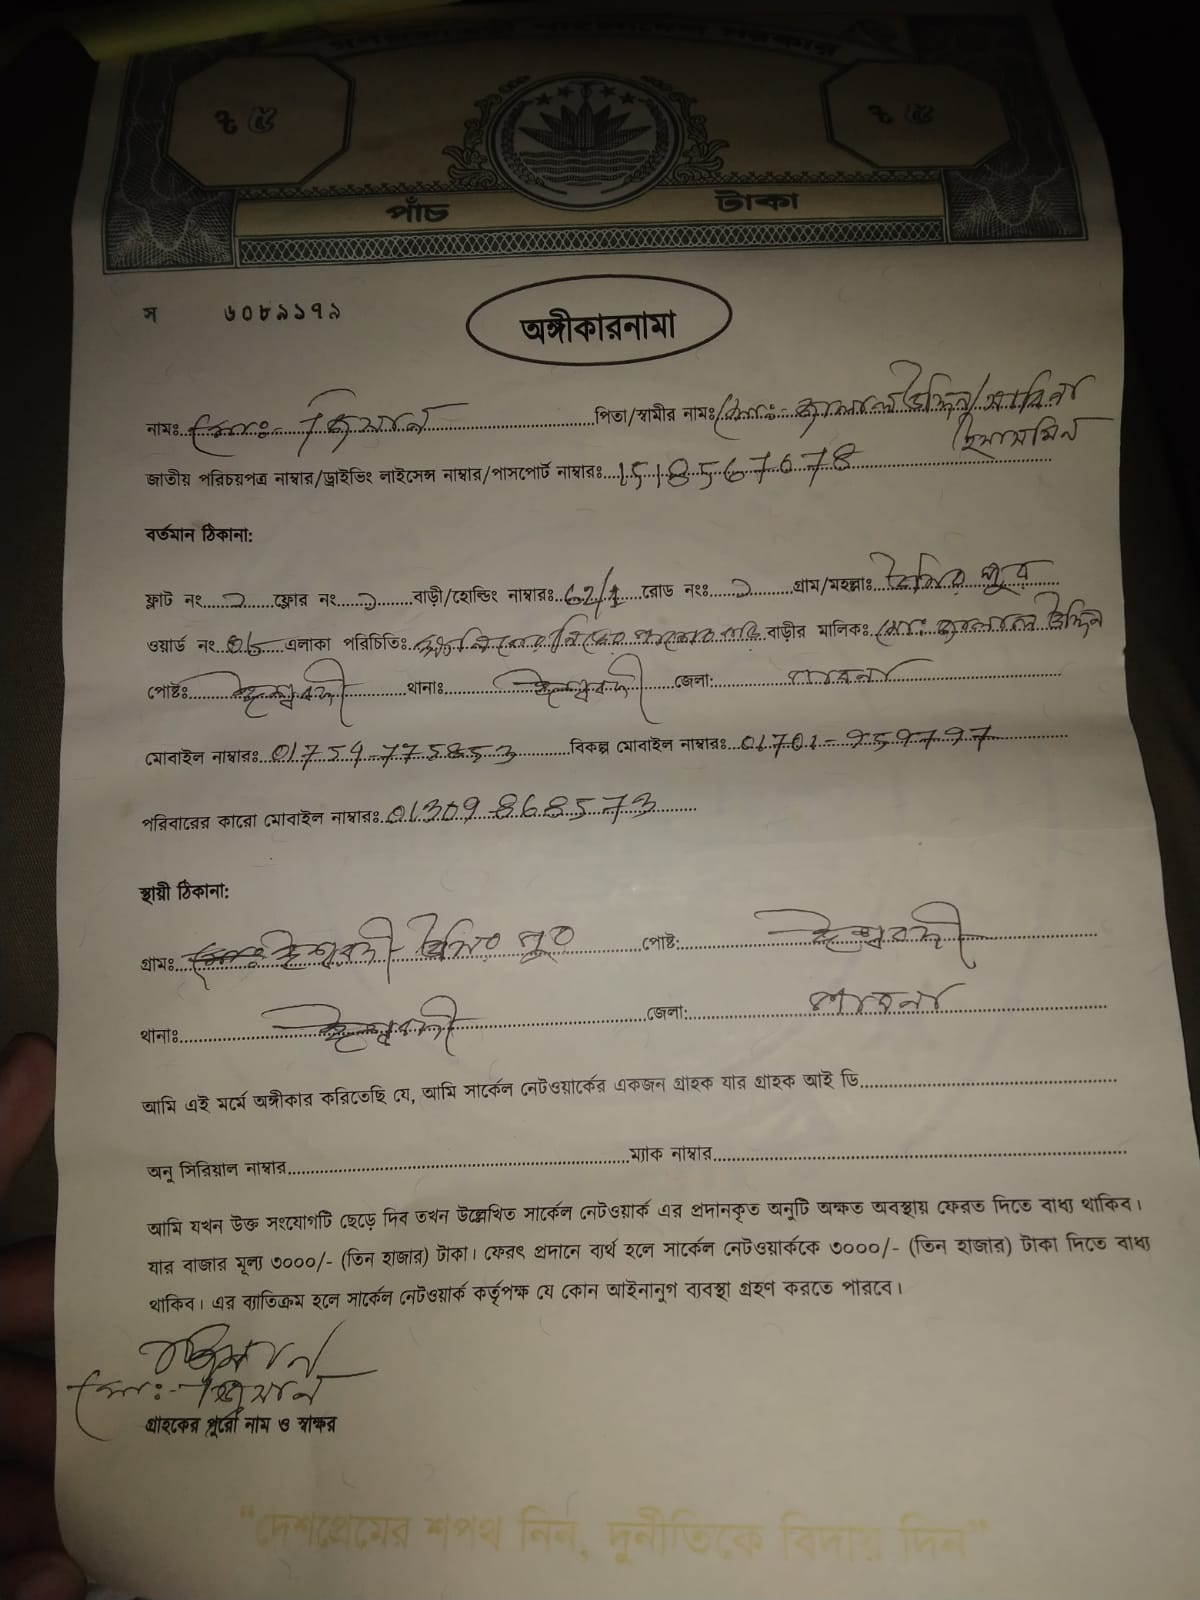 গণপ্রজাতন্ত্রী বাংলাদেশ সরকার
৳ ৫ ৳ ৫
পাঁচ টাকা
স ৬০৮৯১৭৯
অঙ্গীকারনামা
নামঃ মোঃ- জিসান পিতা/স্বামীর নামঃ মোঃ- জালাল উদ্দিন/সাবিনা
ইয়াসমিন
জাতীয় পরিচয়পত্র নাম্বার/ড্রাইভিং লাইসেন্স নাম্বার/পাসপোর্ট নাম্বারঃ 1518567678
বর্তমান ঠিকানা:
ফ্লাট নং ফ্লোর নং বাড়ী/হোল্ডিং নাম্বারঃ 62/1 রোড নংঃ গ্রাম/মহল্লাঃ
ওয়ার্ড নং এলাকা পরিচিতিঃ বাড়ীর মালিকঃ মোঃ জালাল উদ্দিন
পোষ্টঃ ঈশ্বরদী থানাঃ ঈশ্বরদী জেলা: পাবনা
মোবাইল নাম্বারঃ 01754-775853 বিকল্প মোবাইল নাম্বারঃ 01701-959797
পরিবারের কারো মোবাইল নাম্বারঃ 01309-868573
স্থায়ী ঠিকানা:
গ্রামঃ ঈশ্বরদী পোষ্ট: ঈশ্বরদী
থানাঃ ঈশ্বরদী জেলা: পাবনা
আমি এই মর্মে অঙ্গীকার করিতেছি যে, আমি সার্কেল নেটওয়ার্কের একজন গ্রাহক যার গ্রাহক আই ডি
অনু সিরিয়াল নাম্বার ম্যাক নাম্বার
আমি যখন উক্ত সংযোগটি ছেড়ে দিব তখন উল্লেখিত সার্কেল নেটওয়ার্ক এর প্রদানকৃত অনুটি অক্ষত অবস্থায় ফেরত দিতে বাধ্য থাকিব।
যার বাজার মূল্য ৩০০০/- (তিন হাজার) টাকা। ফেরৎ প্রদানে ব্যর্থ হলে সার্কেল নেটওয়ার্ককে ৩০০০/- (তিন হাজার) টাকা দিতে বাধ্য
থাকিব। এর ব্যাতিক্রম হলে সার্কেল নেটওয়ার্ক কর্তৃপক্ষ যে কোন আইনানুগ ব্যবস্থা গ্রহণ করতে পারবে।
জিসান
মোঃ- জিসান
গ্রাহকের পুরো নাম ও স্বাক্ষর
“দেশপ্রেমের শপথ নিন, দুর্নীতিকে বিদায় দিন”